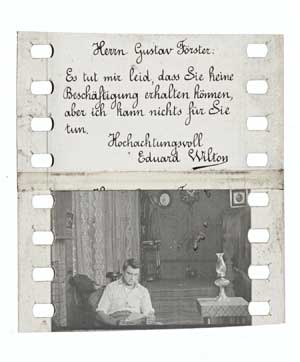 Herrn Gustav Förster:
Es tut mir leid, dass Sie keine
Beschäftigung erhalten können,
aber ich kann nichts für Sie
tun.
Hochachtungsvoll
Eduard Wilton